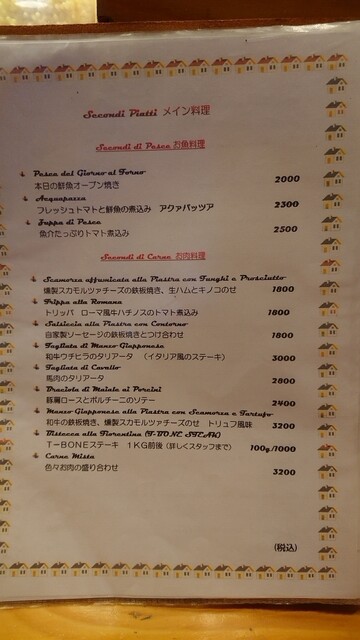 Secondi Piatti メイン料理
Secondi di Pesce お魚料理
Pesce del Giorno al Forno
本日の鮮魚オーブン焼き 2000
Acquapazza
フレッシュトマトと鮮魚の煮込み アクァパッツア 2300
Zuppa di Pesce
魚介たっぷりトマト煮込み 2500
Secondi di Carne お肉料理
Scamorza affumicata alla Piastra con Funghi e Prosciutto
燻製スカモルツァチーズの鉄板焼き、生ハムとキノコのせ 1800
Trippa alla Romana
トリッパ ローマ風牛ハチノスのトマト煮込み 1800
Salsiccia alla Piastra con Contorno
自家製ソーセージの鉄板焼きとつけ合わせ 1800
Tagliata di Manzo Giapponese
和牛ウチヒラのタリアータ （イタリア風のステーキ） 3000
Tagliata di Cavallo
馬肉のタリアータ 2800
Braciola di Maiale ai Porcini
豚肩ロースとポルチーニのソテー 2400
Manzo Giapponese alla Piastra con Scamorza e Tartufo
和牛の鉄板焼き、燻製スカモルツァチーズのせ トリュフ風味 3200
Bistecca alla Fiorentina (T-BONE STEAK)
T－BONEステーキ 1KG前後（詳しくスタッフまで） 100g/1000
Carne Mista
色々お肉の盛り合わせ 3200
(税込)